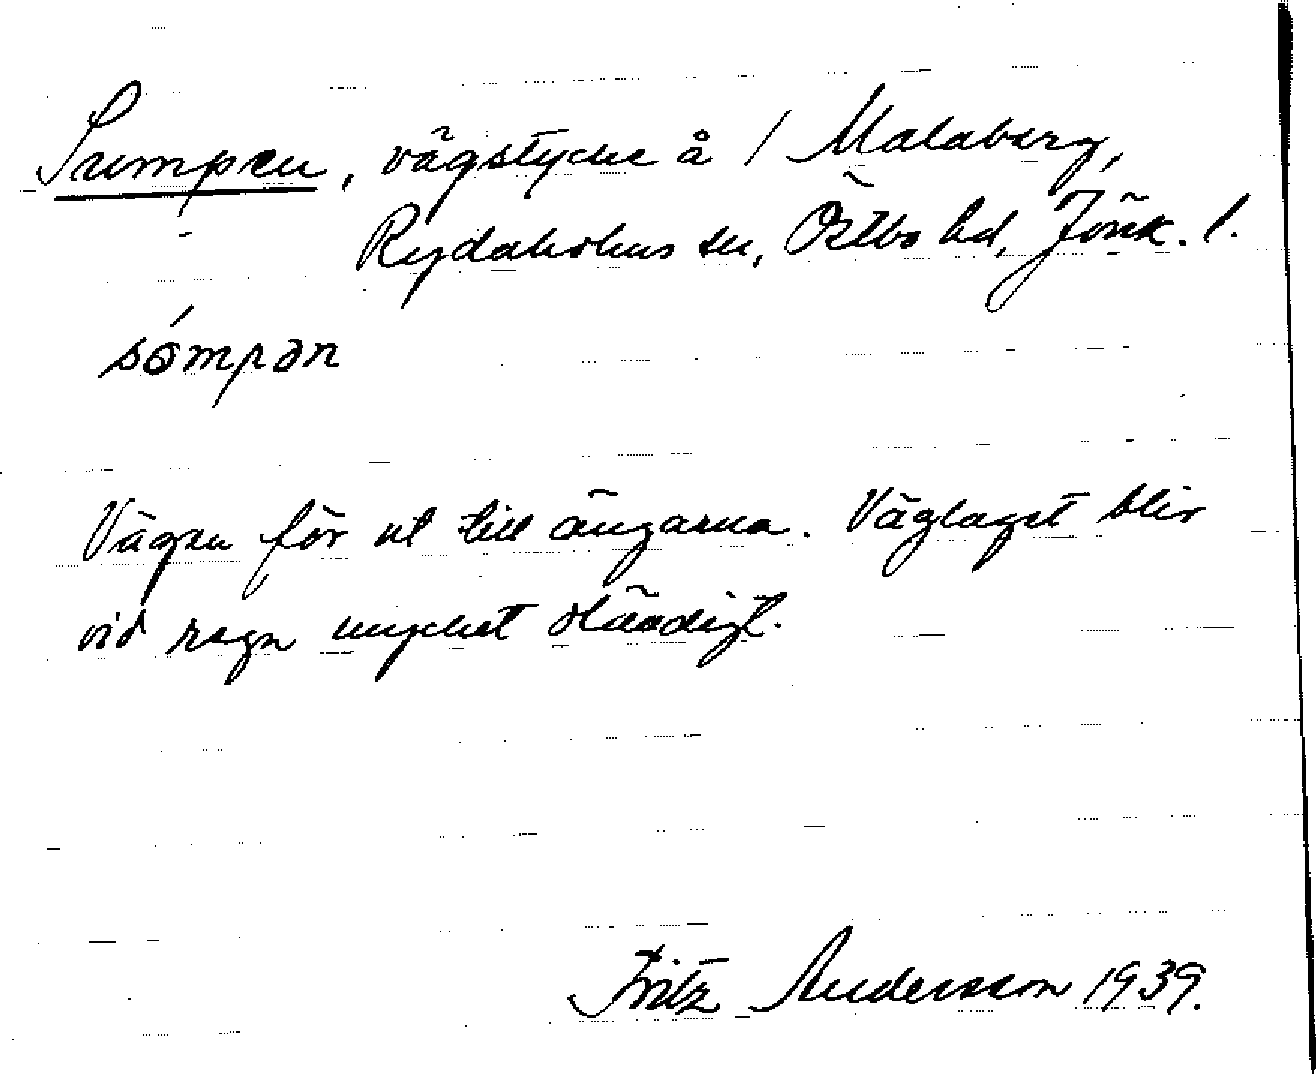 Sumpen, vägstycke å / Malaberg,
Rydaholms sn, Östbo hd, Jönk. l.
sómpən
Vägen för ut till ängarna. Väglaget blir
vid regn mycket eländigt.
Fritz Andersson 1939.